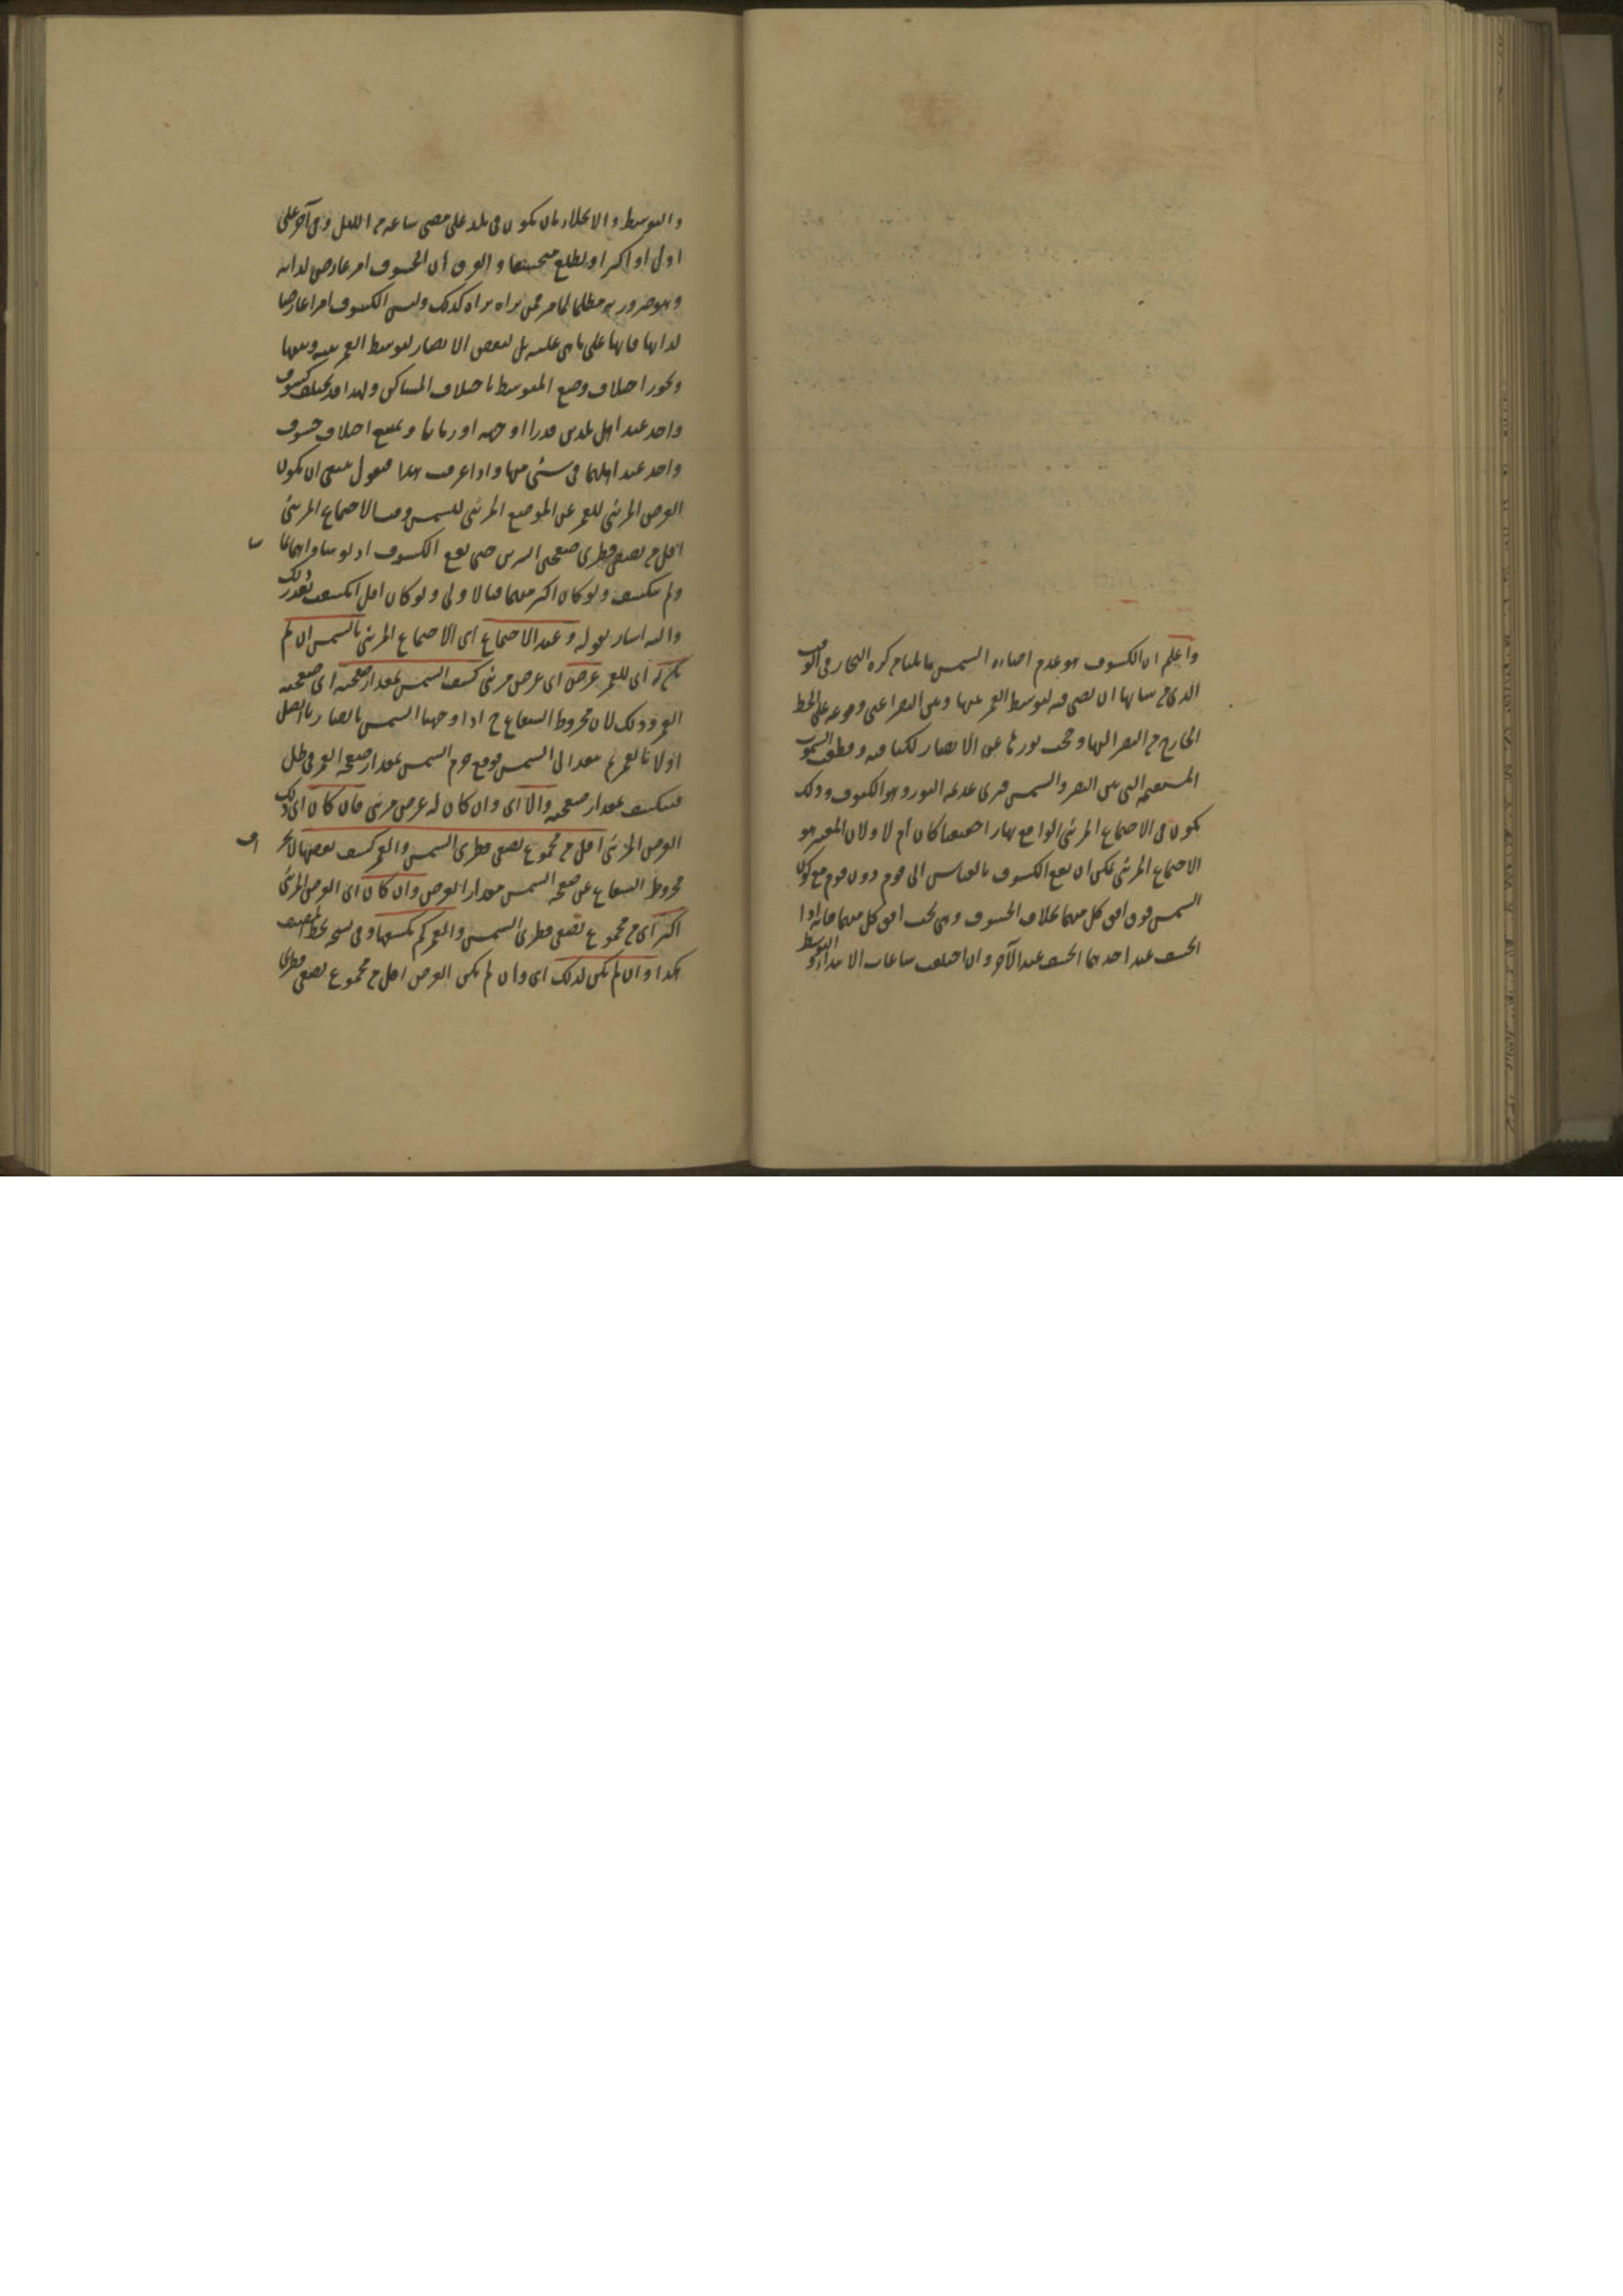 واعلم ان الكسوف هو عدم اضاءة الشمس ما يلينا من كرة البخار في الوقت
الذي من شانها ان تضئ فيه لتوسط القمر بينها وبين البصر اعني وقوعه على الخط
الخارج من البصر اليها وحجب نورها عن الابصار لكثافته وقطعه السموت
المستقيمة التي بين البصر والشمس فترى عديمة النور وهو الكسوف وذلك
يكون في الاجتماع المرئي الواقع نهارا حقيقيا كان ام لا ولان المعتبر هو
الاجتماع المرئي يمكن ان يقع الكسوف بالقياس الى قوم دون قوم مع كون
الشمس فوق افق كل منهما بخلاف الخسوف وهي تحت افق كل منهما فانه اذا
انخسف عند احدهما انخسف عند الآخر وان اختلفت ساعات الابتداء والتوسط
والتوسط والانجلاء بان يكون في بلد على مضي ساعة من الليل وفي آخر على
اقل او اكثر او يطلع منخسفا والفرق ان الخسوف امر عارض لذاته
وهو ضرورة مظلما لما مر فمن يراه يراه كذلك وليس الكسوف امرا عارضا
لذاتها فانها على ما هي عليه بل لبعض الابصار لتوسط القمر بينه وبينها
ويجوز اختلاف وضع المتوسط باختلاف المساكن ولهذا قد يختلف كسوف
واحد عند اهل بلدين قدرا او جهة او زمانا ويمتنع اختلاف خسوف
واحد عند اهلهما في شئ منها واذا عرفت هذا فنقول ينبغي ان يكون
العرض المرئي للقمر عن الموضع المرئي للشمس وقت الاجتماع المرئي
اقل من نصفي قطري صفحتي النيرين حتى يقع الكسوف اذ لو ساواهما تماسا
ولم تنكسف ولو كان اكثر منهما فبالاولى ولو كان اقل انكسفت بقدر ذلك
واليه اشار بقوله وعند الاجتماع اي الاجتماع المرئي بالشمس ان لم
يكن له اي للقمر عرض اي عرض مرئي كسف الشمس بمقدار صفحته اي صفحة
القمر وذلك لان مخروط الشعاع ح اذا وجهنا الشمس بابصارنا اتصل
اولا بالقمر ثم ينفذ الى الشمس فوقع جرم الشمس بمقدار صفحة القمر في ظل
فينكسف بمقدار صفحته والا اي وان كان له عرض مرئي فان كان اي ذلك
العرض المرئي اقل من مجموع نصفي قطري الشمس والقمر كسف بعضها لانحراف
مخروط الشعاع عن صفحة الشمس بمقدار العرض وان كان اي العرض المرئي
اكثر اي من مجموع نصفي قطري الشمس والقمر لم يكسفها وفي نسخة بخط المصنف
هكذا وان لم يكن كذلك اي وان لم يكن العرض اقل من مجموع نصفي قطري